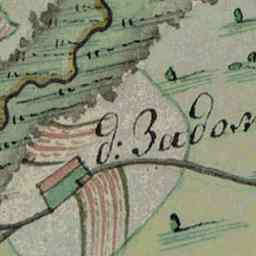 д: Задом